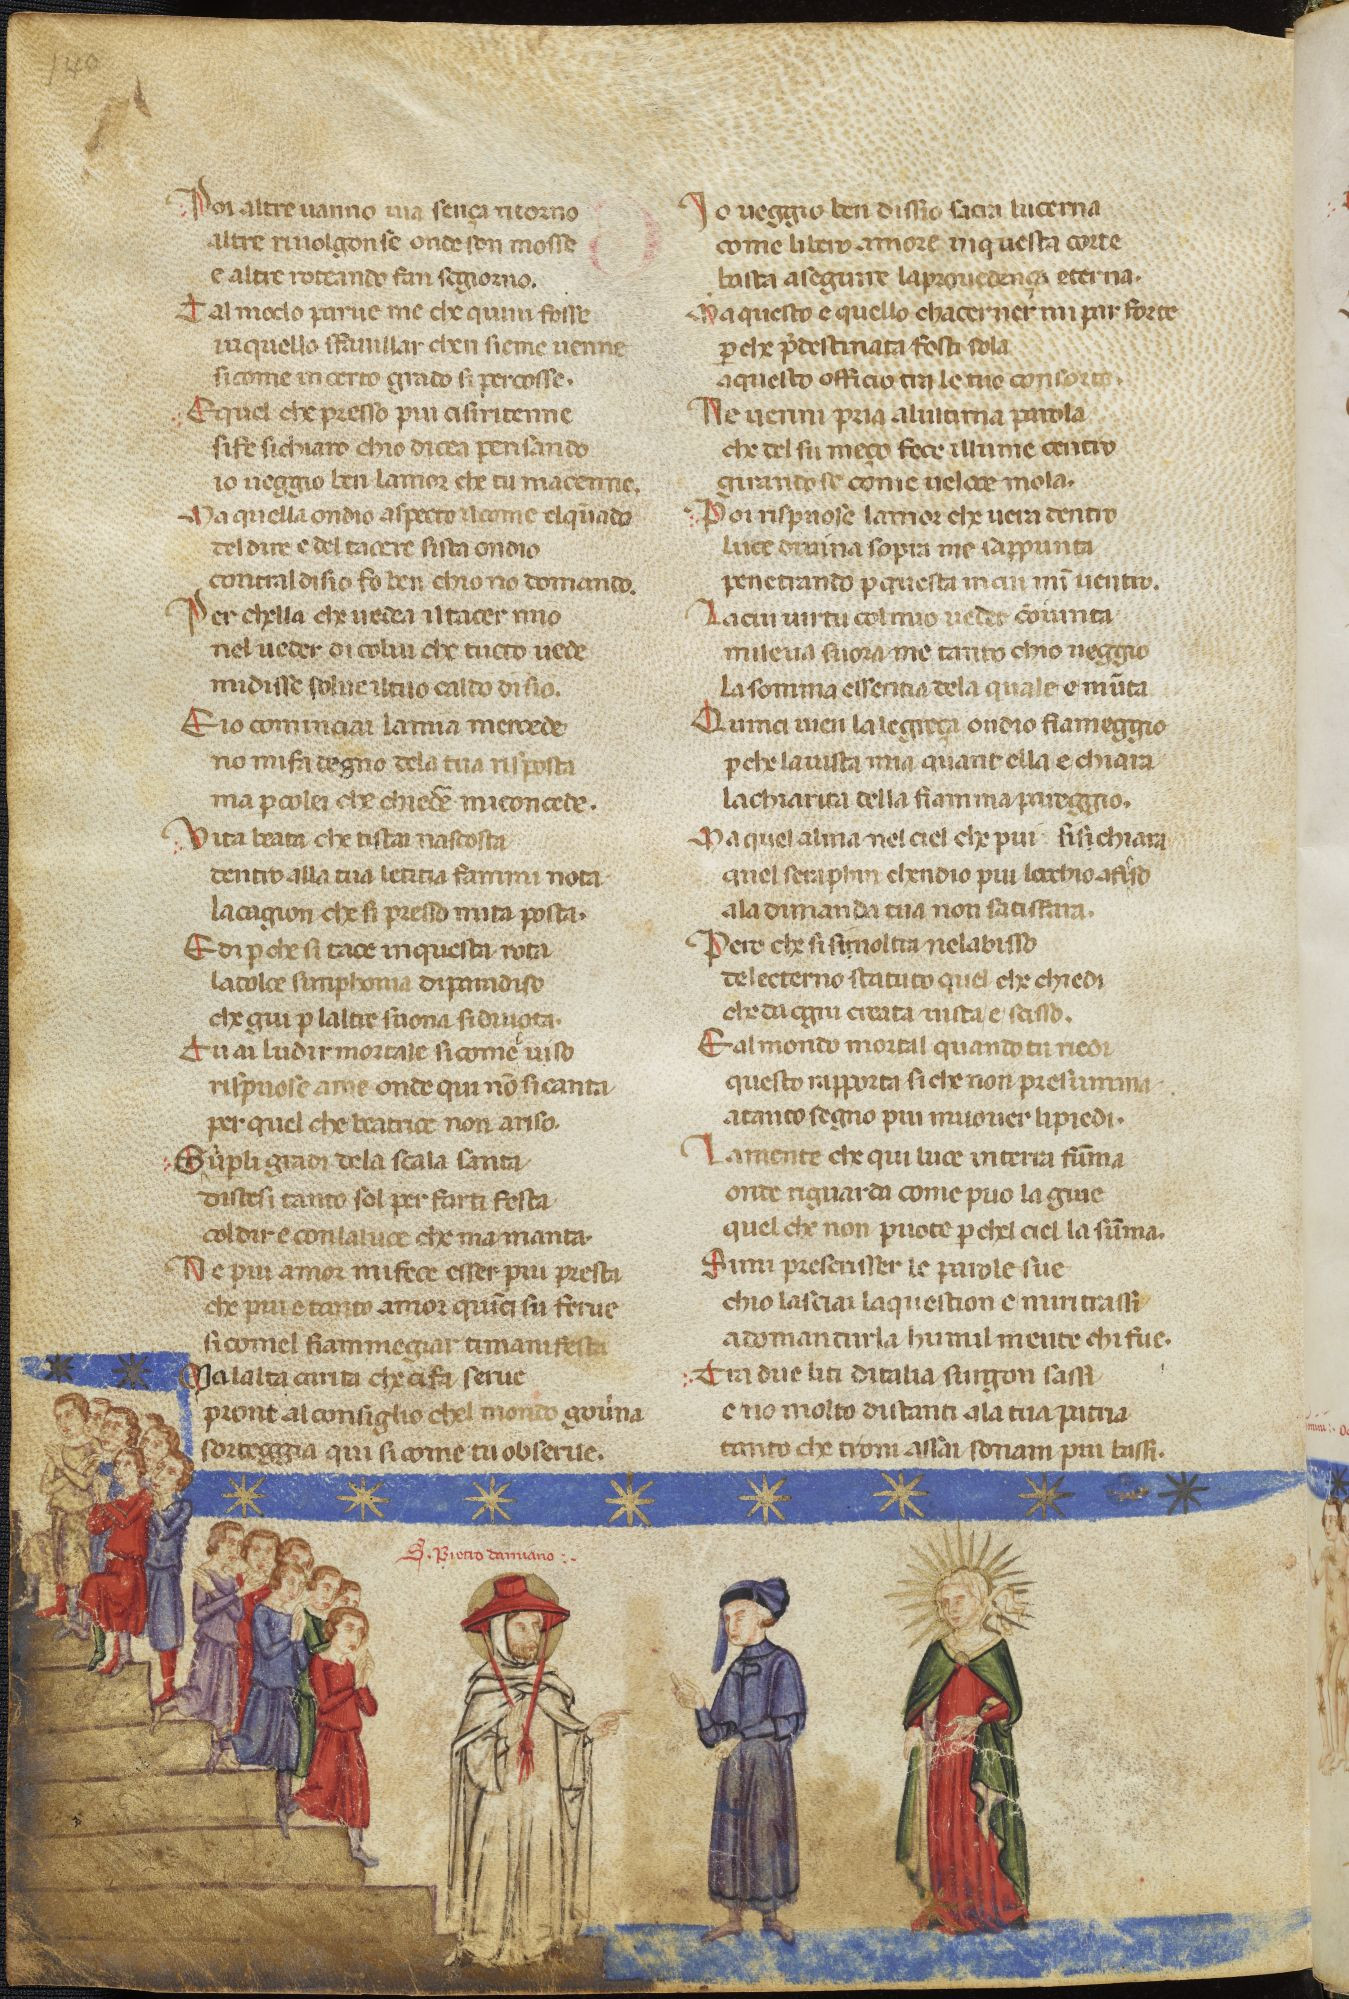 140
Poi altre uanno uia sença ritorno
altre riuolgonse onde son mosse
e altre roteando fan segiorno.
Tal modo parue me che quiui fosse
inquello sfauillar chen sieme uenne
sicome incerto grado si percosse.
Equel che presso piu cisiritenne
sife sichiaro chio dicea pensando
io ueggio ben lamor che tu macenne.
Ma quella ondio aspecto ilcome elqūado
deldire e del tacere sista ondio
contraldisio fo ben chio no domando.
Per chella che uedea iltacer mio
nel ueder di colui che tucto uede
midisse solue iltuo caldo disio.
E io cominciai lamia mercede
no mifa degno dela tua risposta
ma p colei che chieder miconcede.
Vita beata che tistai nascosta
dentro alla tua letitia fammi nota
lacagion che si presso mita posta.
E di p che si tace inquesta rota
ladolce sinphonia diparadiso
che giu p laltre suona sidiuota.
Tu ai ludir mortale sicome uiso
rispuose ame onde qui nō sicanta
per quel che beatrice non ariso.
Giu pli gradi dela scala santa
discesi tanto sol per farti festa
coldir e conlaluce che ma manta.
Ne piu amor mifece esser piu presta
che piu e tanto amor quīci su ferue
si comel fiammegiar timanifesta
Ma lalta carita che cifa serue
pronte al consiglio chel mondo gou͛na
sorteggia qui sicome tu obserue.
Io ueggio ben dissio sacra lucerna
come libero amore inquesta corte
basta aseguire laprouedença eterna.
Ma questo e quello chacerner mi par forte
p che p̄destinata fosti sola
aquesto officio tra le tue consorte.
Ne uenni pria alultima parola
che del su meço fece illume centro
girandose come ueloce mola.
Poi rispuose lamor che uera dentro
luce diuina sopra me sappunta
penetrando p questa in cui mī uentro.
Lacui uirtu colmio ueder cōiunta
mileua suora me tanto chio ueggio
la somma essentia dela quale e mūta
Quinci uien la legreça ondio fiameggio
p che lauista mia quant ella e chiara
lachiarita della fiamma pareggio.
Ma quel alma nel ciel che piu si schiara
quel seraphin chendio piu locchio afiso
ala dimanda tua non satisfara.
Pero che si sinoltra nelabisso
deleterno statuto quel che chiedi
che da ogni creata uista e scisso.
E al mondo mortal quando tu riedi
questo rapporta si che non presumma
atanto segno piu muouer lipiedi.
La mente che qui luce interra fūma
onde riguarda come puo la giue
quel che non puote p chel ciel la sūma.
Simi prescrisser le parole sue
chio lasciai laquestion e miritrassi
adomandarla humil mente chi fue.
Tra due liti ditalia surgon sassi
e no molto distanti ala tua patria
tanto che troni assai sonam piu bassi.
S. Pietro damiano